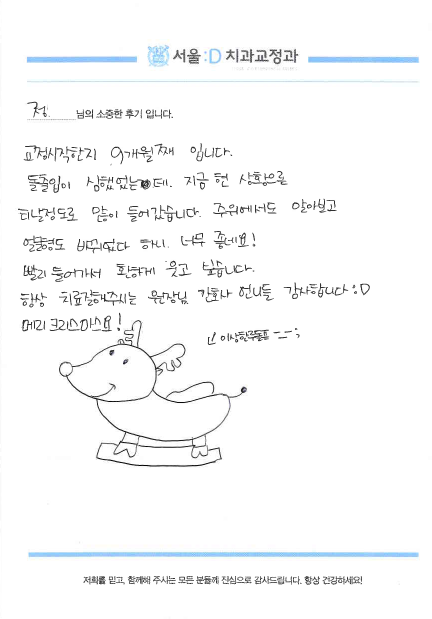 서울:D 치과교정과
정 님의 소중한 후기 입니다.
교정시작한지 9개월째 입니다.
돌출입이 심했었는데. 지금 현 상황으로
티날정도로 많이 들어갔습니다. 주위에서도 알아보고
얼굴형도 바뀌었다 하니. 너무 좋네요!
빨리 들어가서 환하게 웃고 싶습니다.
항상 치료잘해주시는 원장님 간호사 언니들 감사합니다 :D
메리 크리스마스요!
이상한루돌프 ㅡㅡ;
저희를 믿고, 함께해 주시는 모든 분들께 진심으로 감사드립니다. 항상 건강하세요!